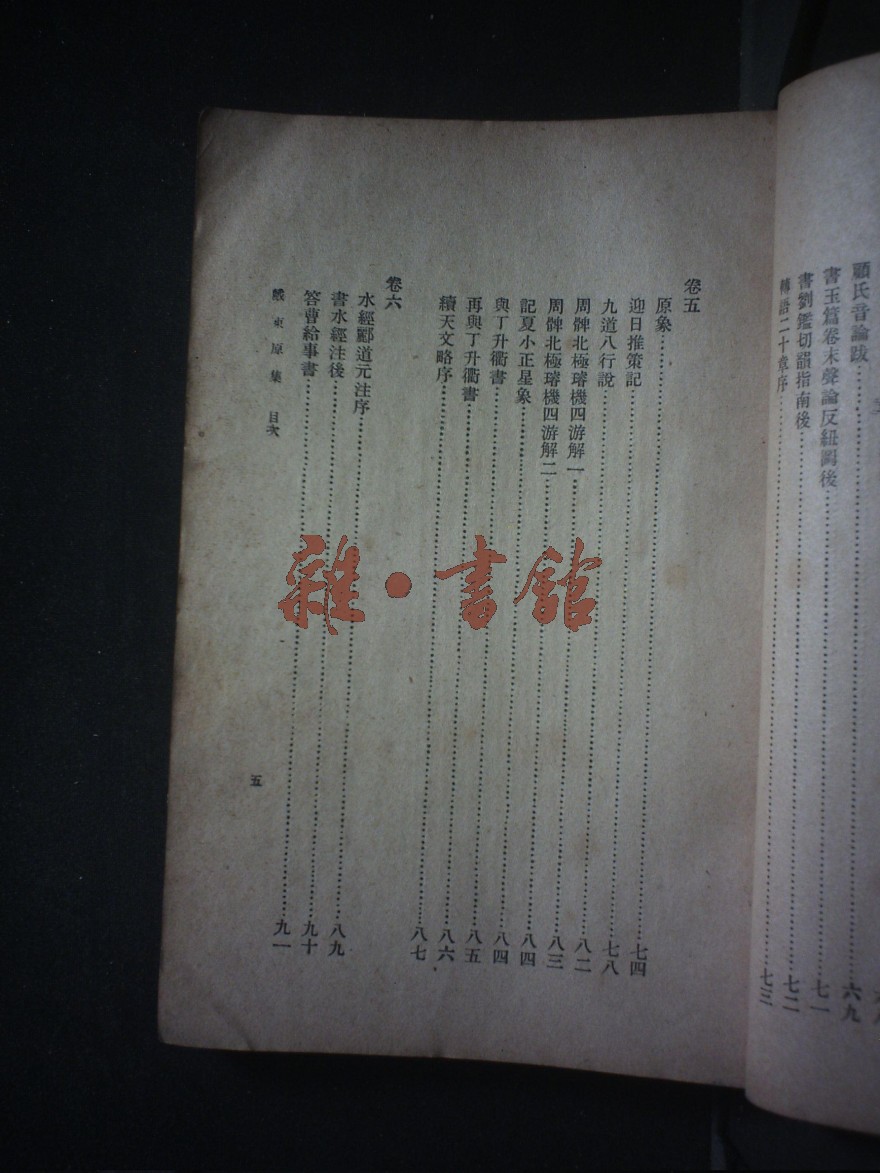 顧氏音論跋……六九
書玉篇卷末聲論反紐圖後……七一
書劉鑑切韻指南後……七二
轉語二十章序……七三
卷五
原象……七四
迎日推策記……七八
九道八行說……八二
周髀北極璿機四游解一……八三
周髀北極璿機四游解二……八四
記夏小正星象……八四
與丁升衢書……八五
再與丁升衢書……八六
續天文略序……八七
卷六
水經酈道元注序……八九
書水經注後……九十
答曹給事書……九一
戴東原集 目次
五
雜·書館